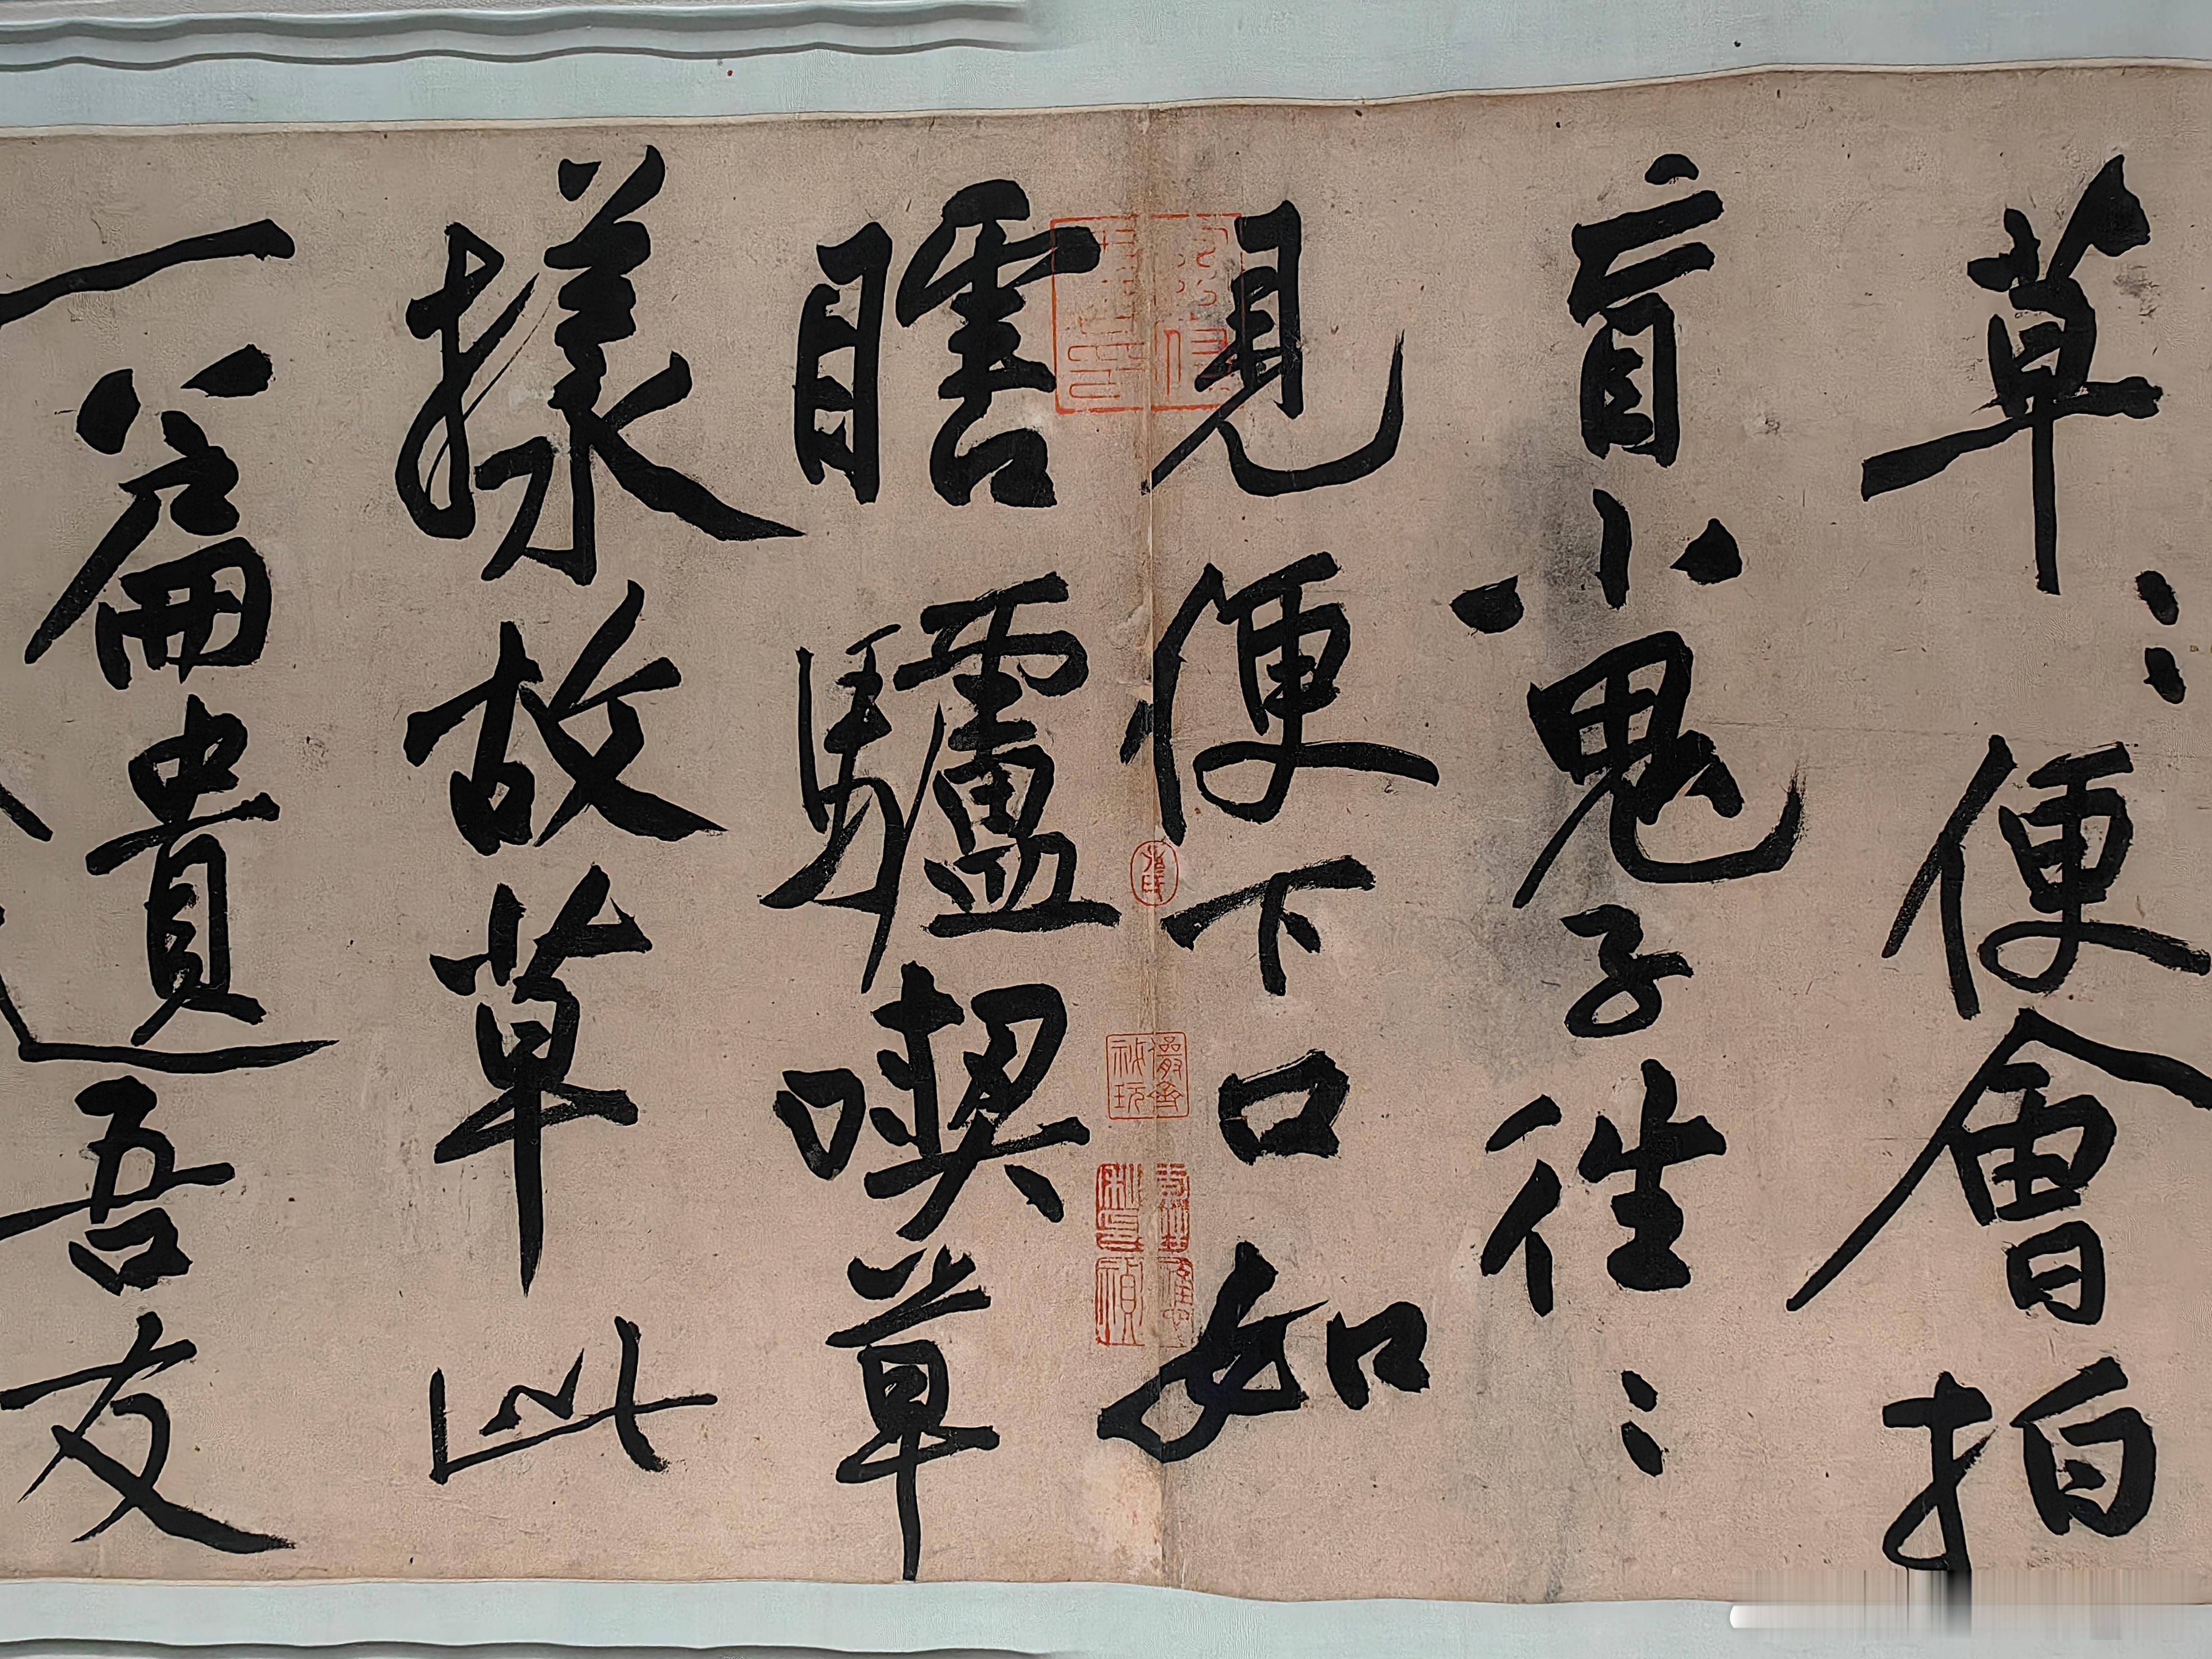 草〻便會拍
盲小鬼子往〻
見便下口如
瞎驢喫草
樣故草此
一篇遺吾友